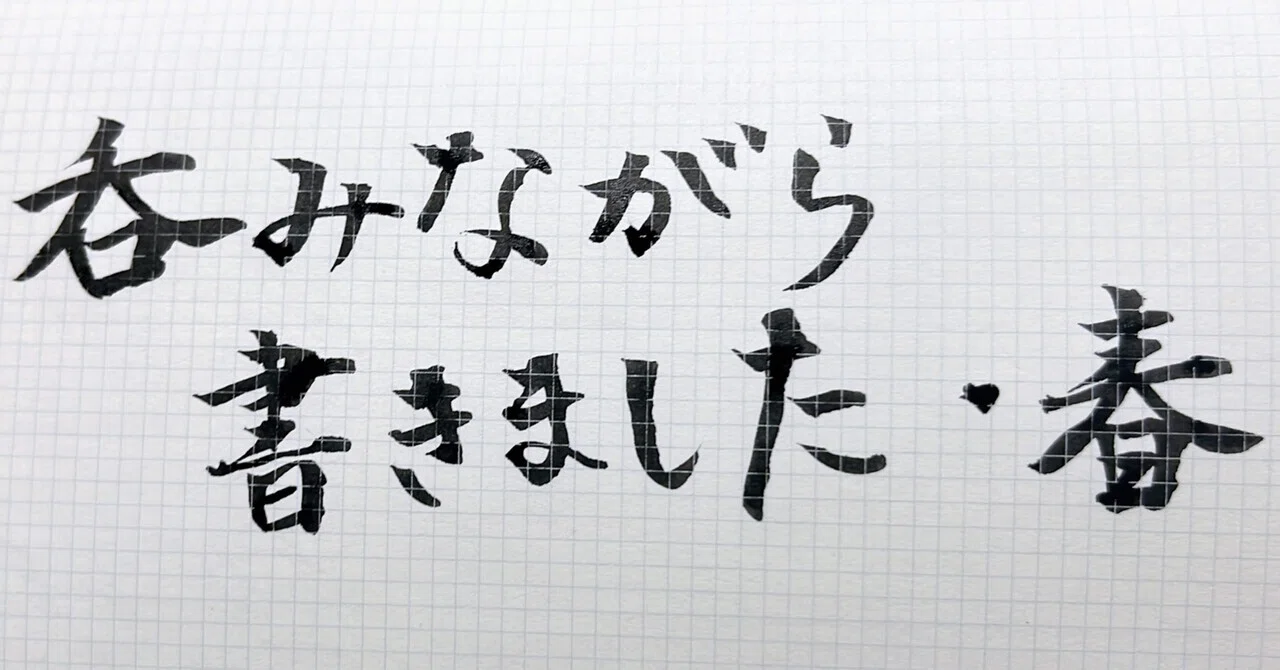 呑みながら
書きました・春